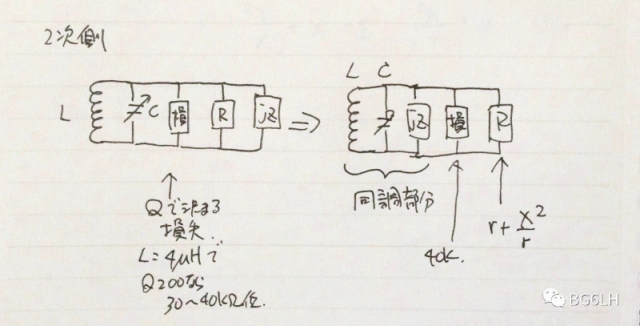 2次側
L
C
損
R
jZ
⇒
L C
jZ
損
R
Qで決まる
損失.
L=4μHで
Q200なら
30~40kΩ位.
同調部分
40k.
r+X²/r
BG6LH